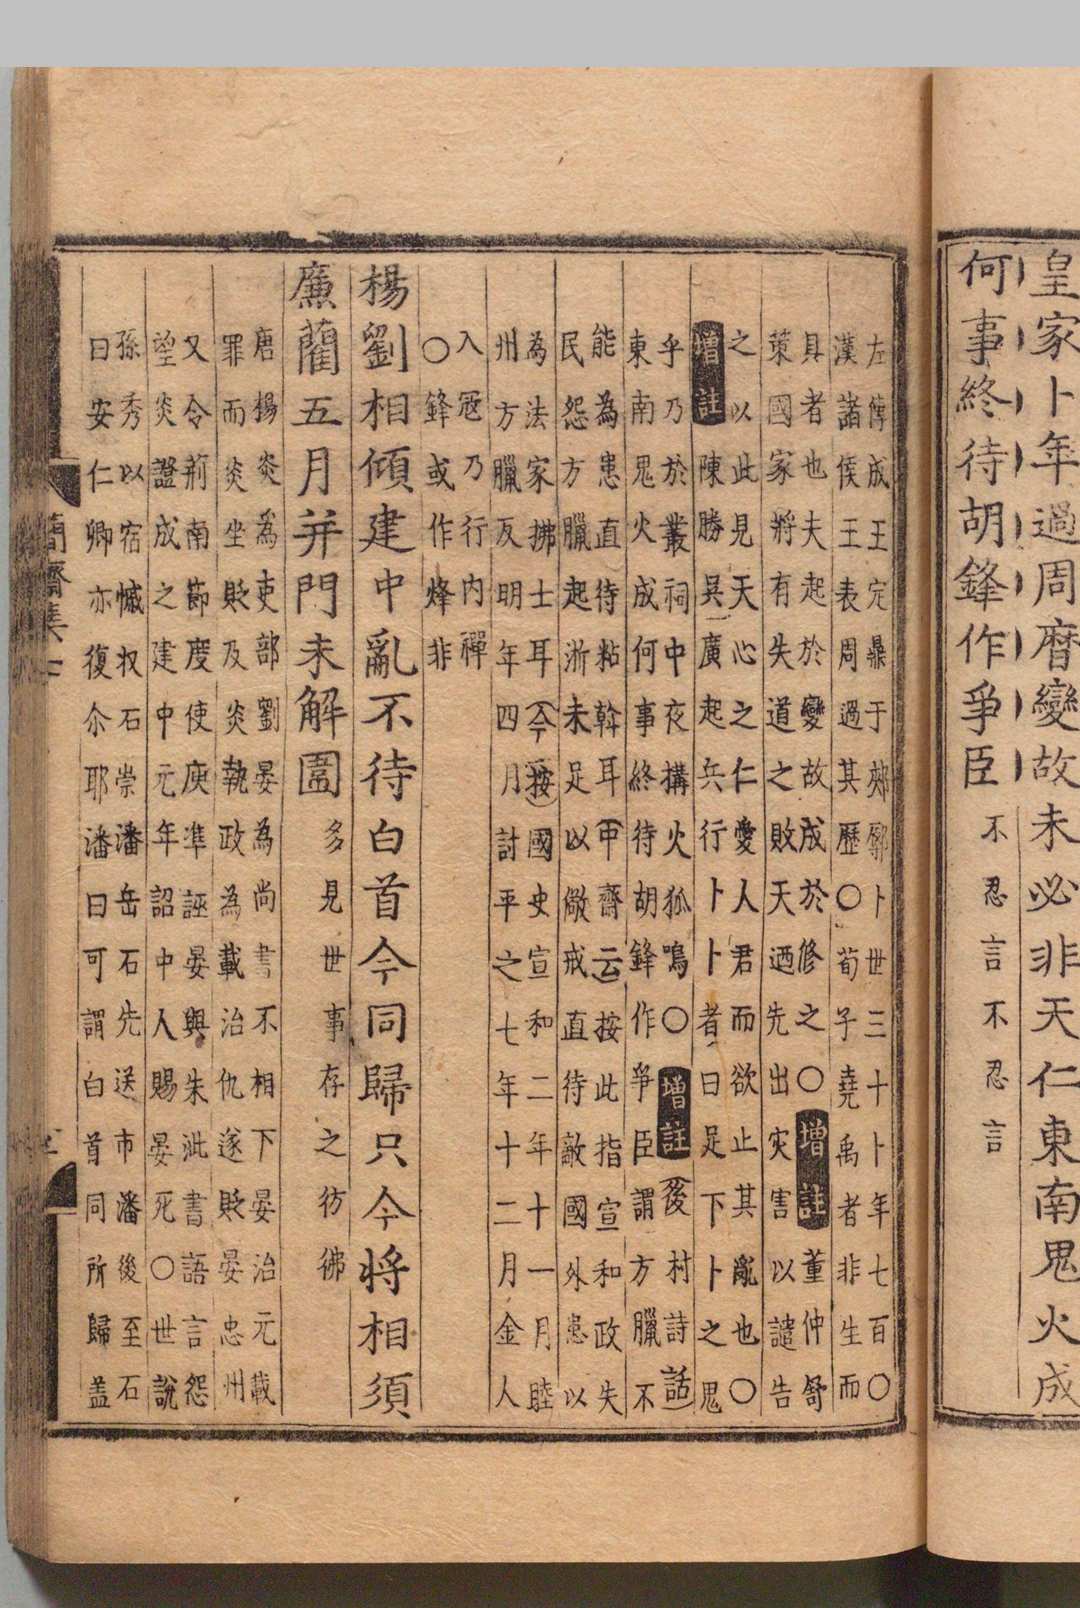 皇家卜年過周曆變故未必非天仁東南鬼火成
何事終待胡鋒作爭臣不忍言不忍言
左傳成王定鼎于郟鄏卜世三十卜年七百○
漢諸侯王表周過其歷○荀子堯禹者非生而
具者也夫起於變故成於修之○增註董仲舒
策國家將有失道之敗天迺先出灾害以譴告
之以此見天心之仁愛人君而欲止其亂也○
增註陳勝吳廣起兵行卜卜者曰足下卜之鬼
乎乃於叢祠中夜構火狐鳴○增註後村詩話
東南鬼火成何事終待胡鋒作爭臣謂方臘不
能為患直待粘幹耳中齋云按此指宣和政失
民怨方臘起浙未足以儆戒直待敵國外患以
為法家拂士耳今按國史宣和二年十一月睦
州方臘反明年四月討平之七年十二月金人
入冦乃行内禪
○鋒或作烽非
楊劉相傾建中亂不待白首今同歸只今將相須
廉藺五月并門未解圍多見世事存之彷彿
唐楊炎為吏部劉晏為尚書不相下晏治元載
罪而炎坐貶及炎執政為載治仇遂貶晏忠州
又令荊南節度使庾準誣晏與朱泚書語言怨
望炎證成之建中元年詔中人賜晏死○世說
孫秀以宿憾收石崇潘岳石先送市潘後至石
曰安仁卿亦復尒耶潘曰可謂白首同所歸盖
簡齋集十